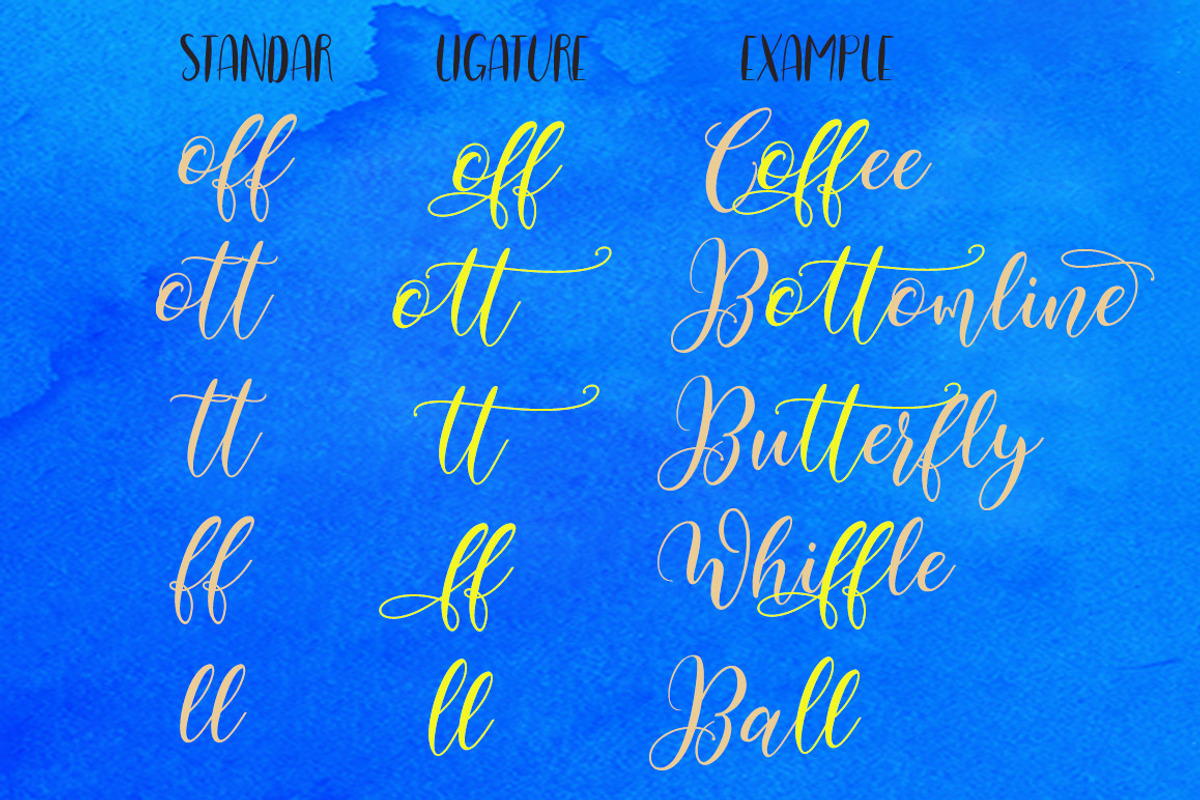 STANDAR LIGATURE EXAMPLE
off off Coffee
ott ott Bottomline
tt tt Butterfly
ff ff Whiffle
ll ll Ball